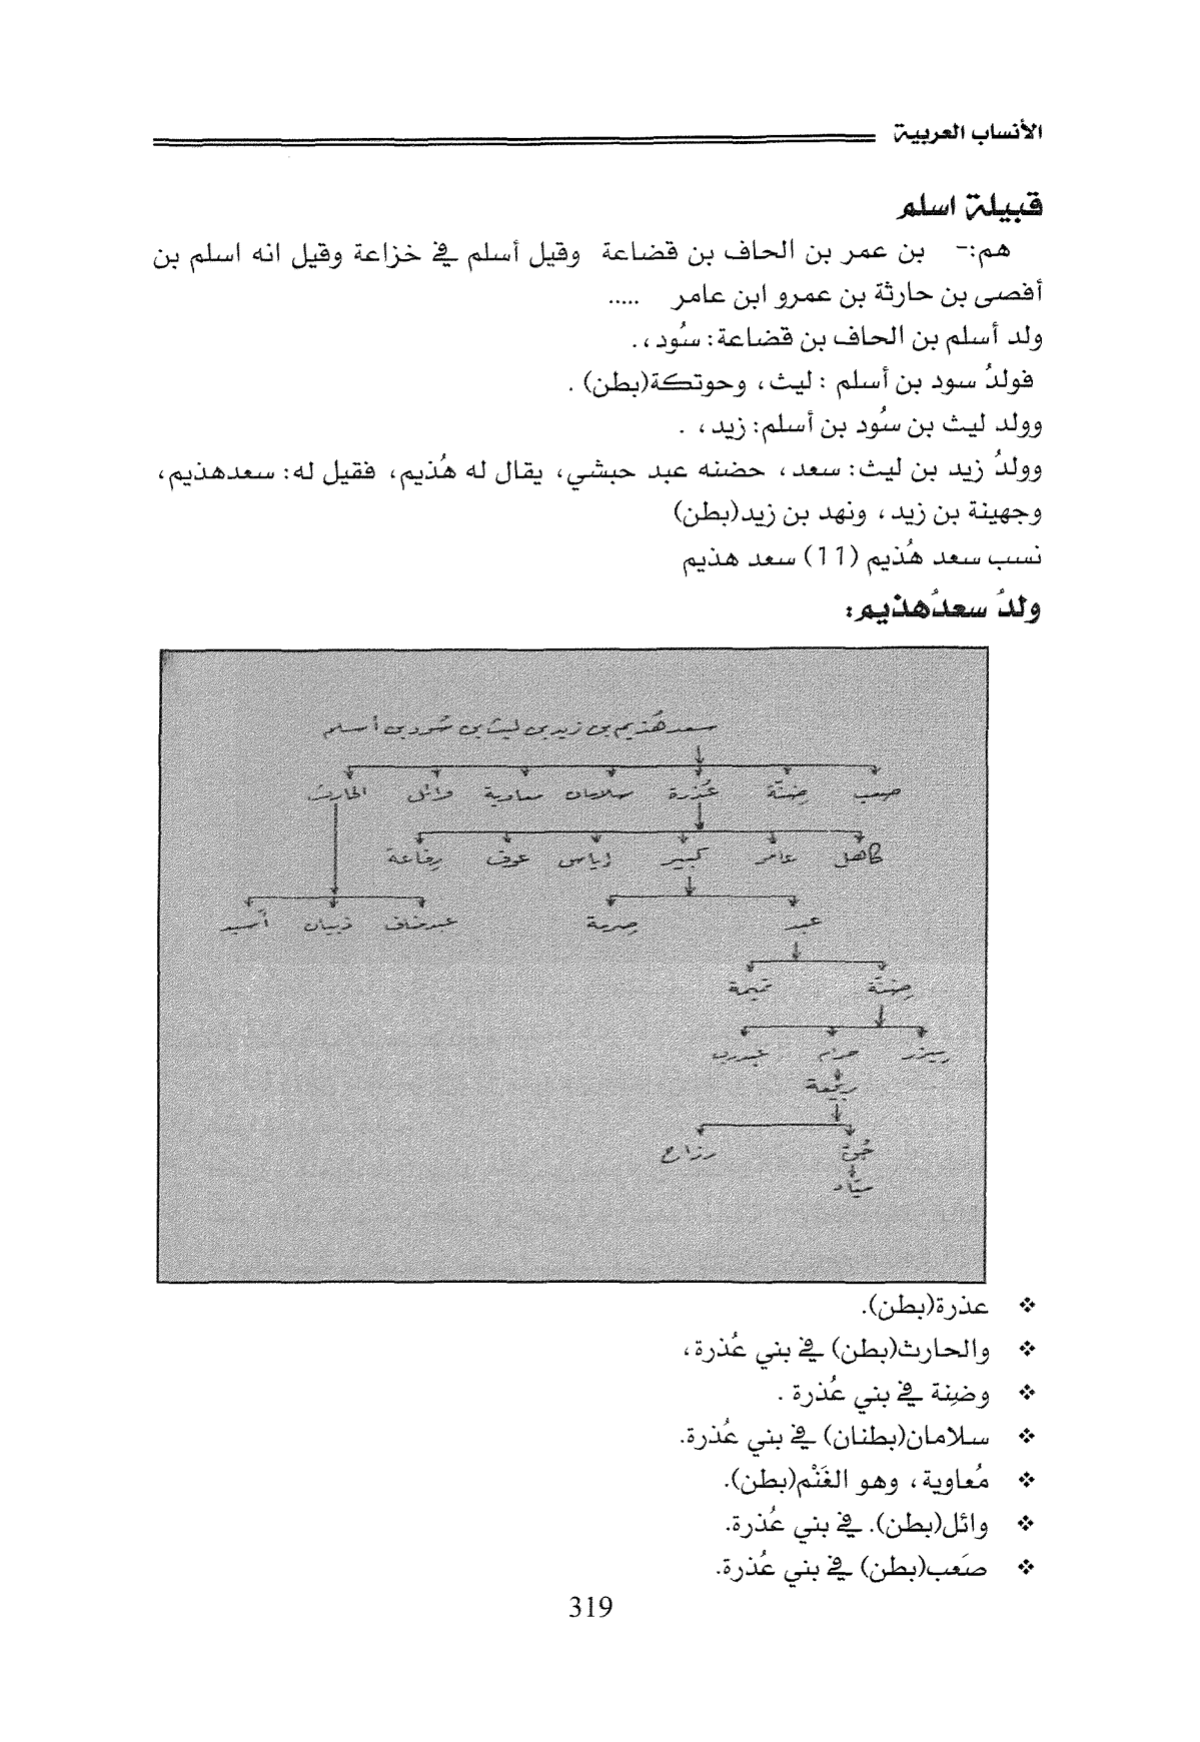 الأنساب العربية
قبيلة اسلم
هم:- بن عمر بن الحاف بن قضاعة وقيل أسلم في خزاعة وقيل انه اسلم بن
أفصى بن حارثة بن عمرو ابن عامر .....
ولد أسلم بن الحاف بن قضاعة: سُود،.
فولدُ سود بن أسلم : ليث، وحوتكة(بطن) .
وولد ليث بن سُود بن أسلم: زيد، .
وولدُ زيد بن ليث: سعد، حضنه عبد حبشي، يقال له هُذيم، فقيل له: سعدهذيم،
وجهينة بن زيد، ونهد بن زيد(بطن)
نسب سعد هُذيم (11) سعد هذيم
ولدُ سعدُهذيم:
سعد هُذيم بن زيد بن ليث بن سُود بن أسلم
صعب ضِنّة عُذرة سلامان معاوية وائل الحارث
كاهل عامر كبير إياس عوف رفاعة
عبد صِرمة عبد مناف ذبيان أسيد
ضِنّة تميمة
حرام
ربيعة
حُيّ رزاح
عذرة(بطن).
والحارث(بطن) في بني عُذرة،
وضِنة في بني عُذرة .
سلامان(بطنان) في بني عُذرة.
مُعاوية، وهو الغَنْم(بطن).
وائل(بطن). في بني عُذرة.
صَعب(بطن) في بني عُذرة.
319